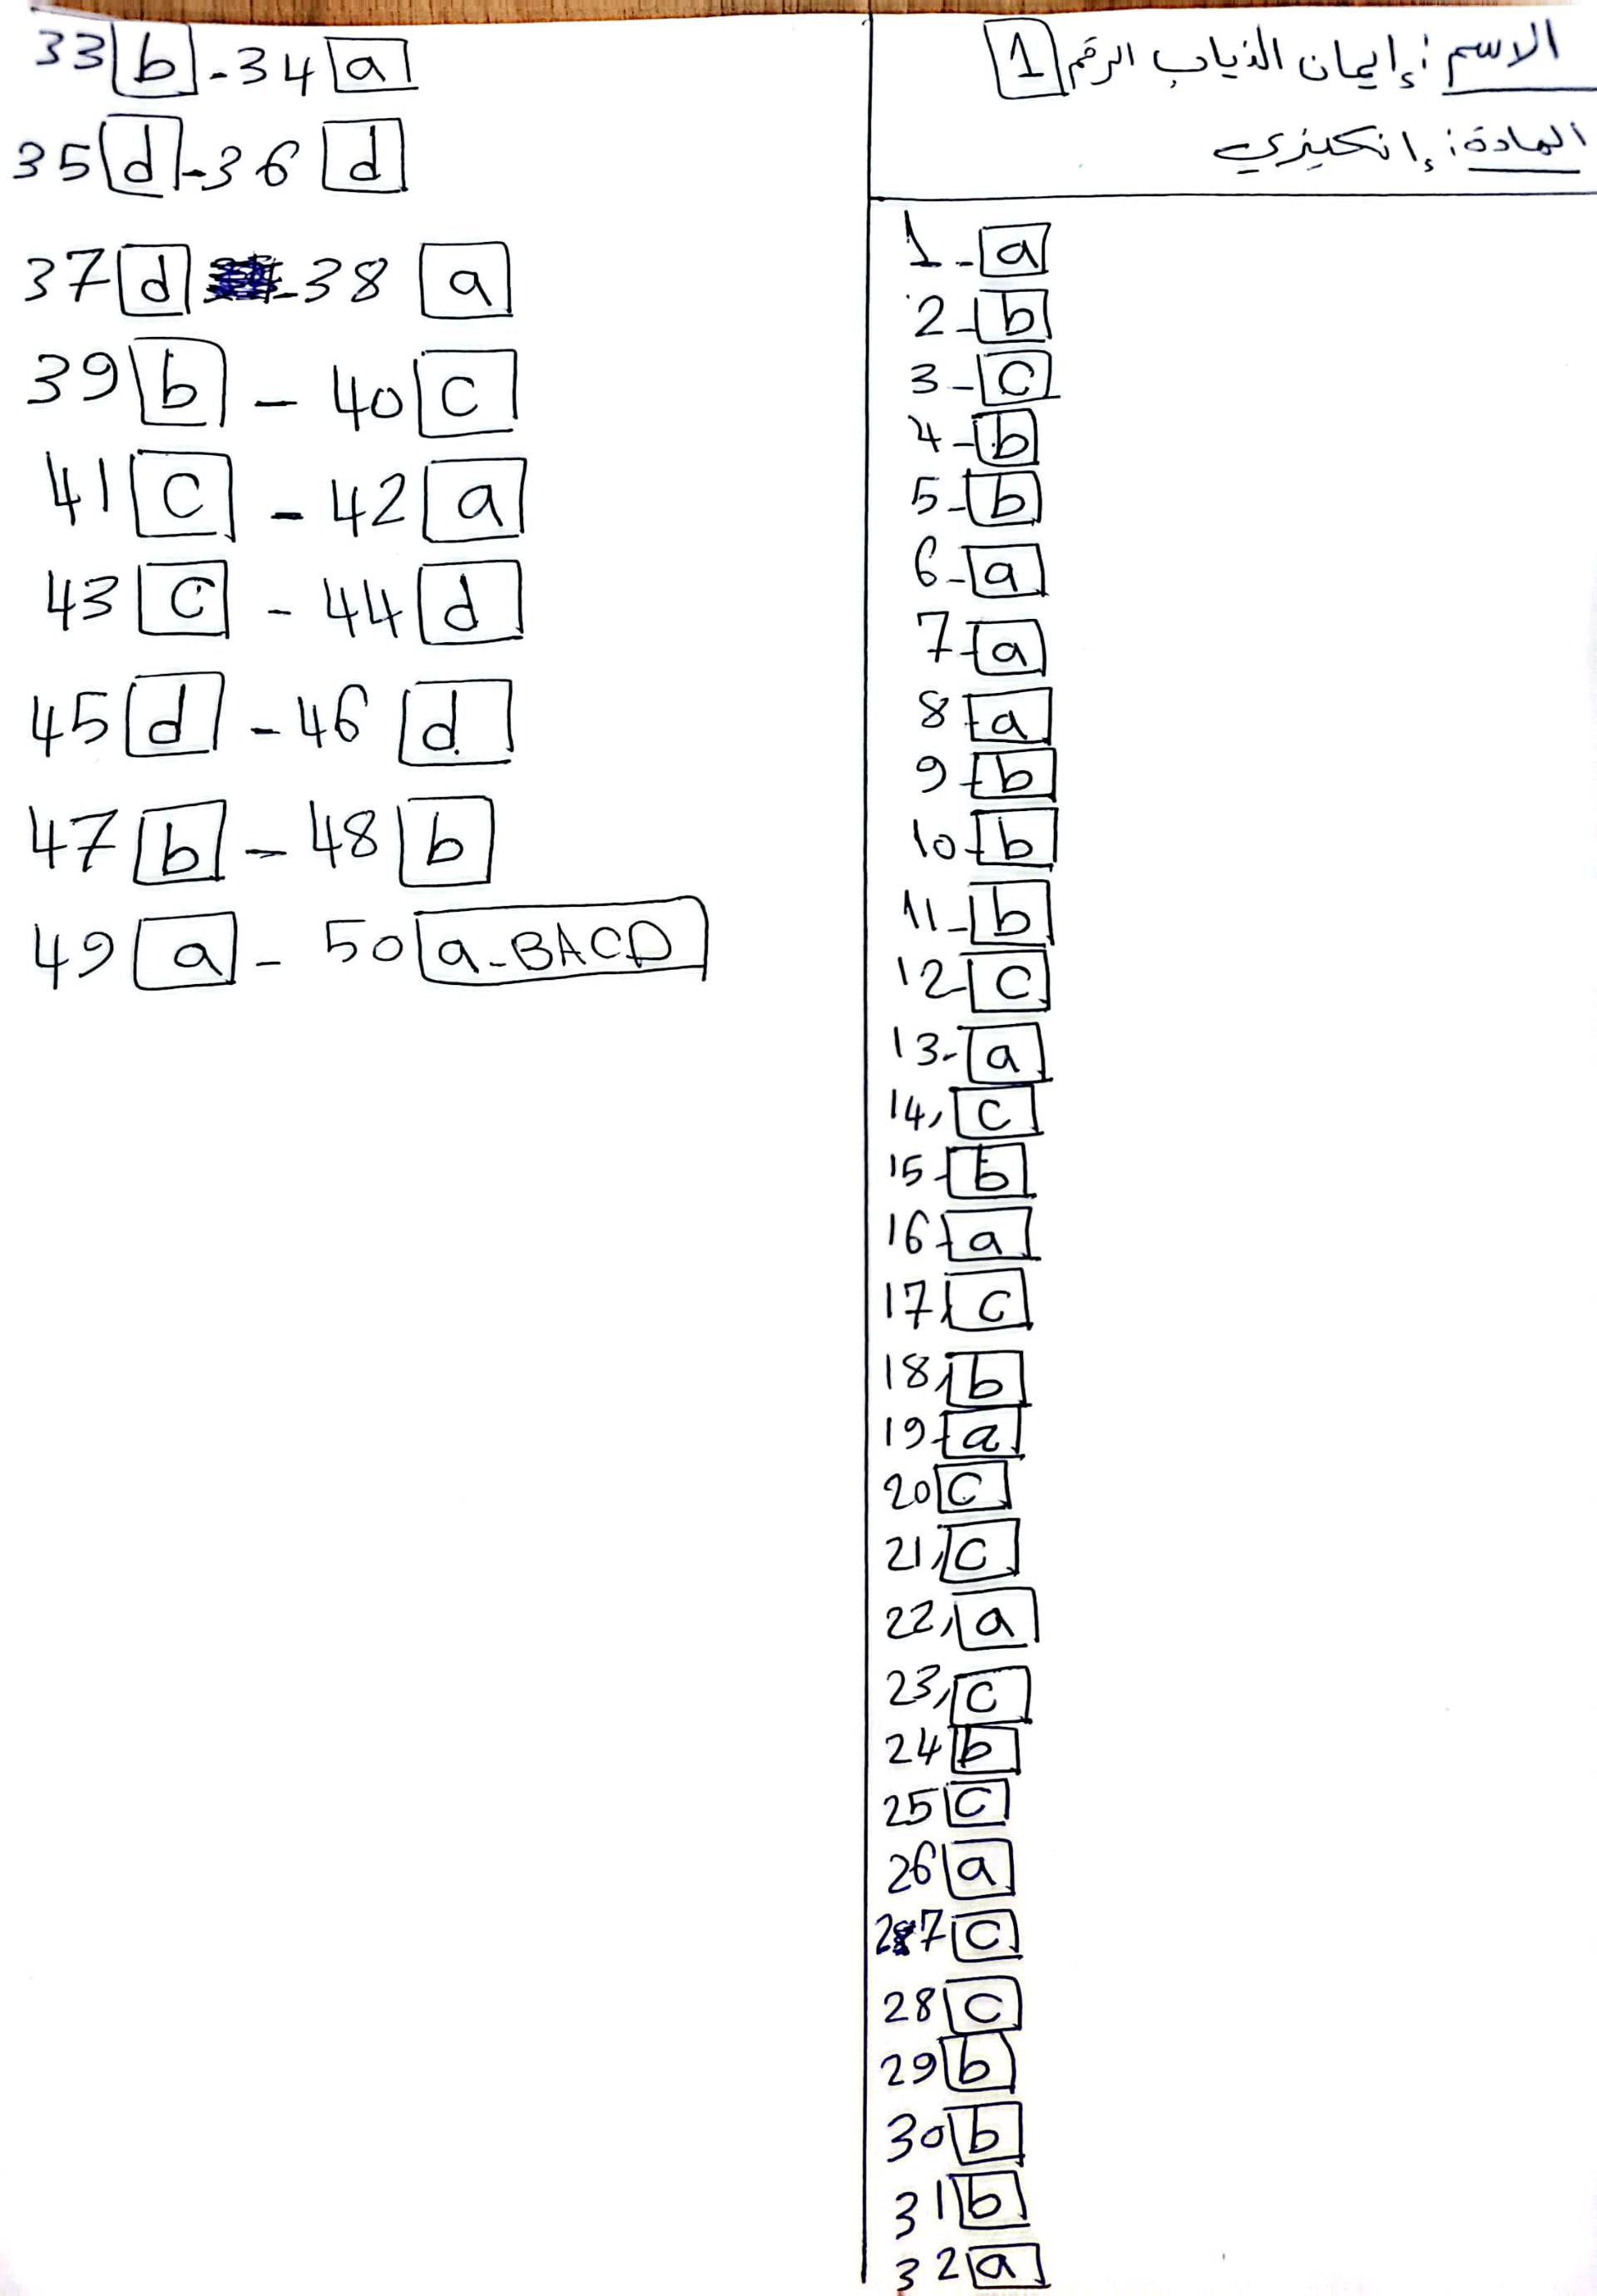 الاسم: إيمان الذياب الرقم 1
المادة: إنكليزي
1- a
2- b
3- c
4- b
5- b
6- a
7- a
8- a
9- b
10- b
11- b
12- c
13- a
14, c
15- b
16- a
17, c
18, b
19- a
20 c
21, c
22, a
23, c
24 b
25 c
26 a
27 c
28 c
29 b
30 b
31 b
32 a
33 b - 34 a
35 d - 36 d
37 d - 38 a
39 b - 40 c
41 c - 42 a
43 c - 44 d
45 d - 46 d
47 b - 48 b
49 a - 50 a - BACD